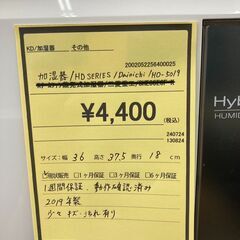 KD/加湿器 その他
2002052256400025
加湿器/HD SERIES/Dainichi/HD-5019
¥4,400
240724
130824
サイズ:幅 36 高さ 37.5 奥行 18 cm
現状販売 □1ヶ月保証 □3ヶ月保証 □6ヶ月保証
1週間保証、動作確認済み
2019年製
少々キズ・汚れ有り
Hyb
HUMID